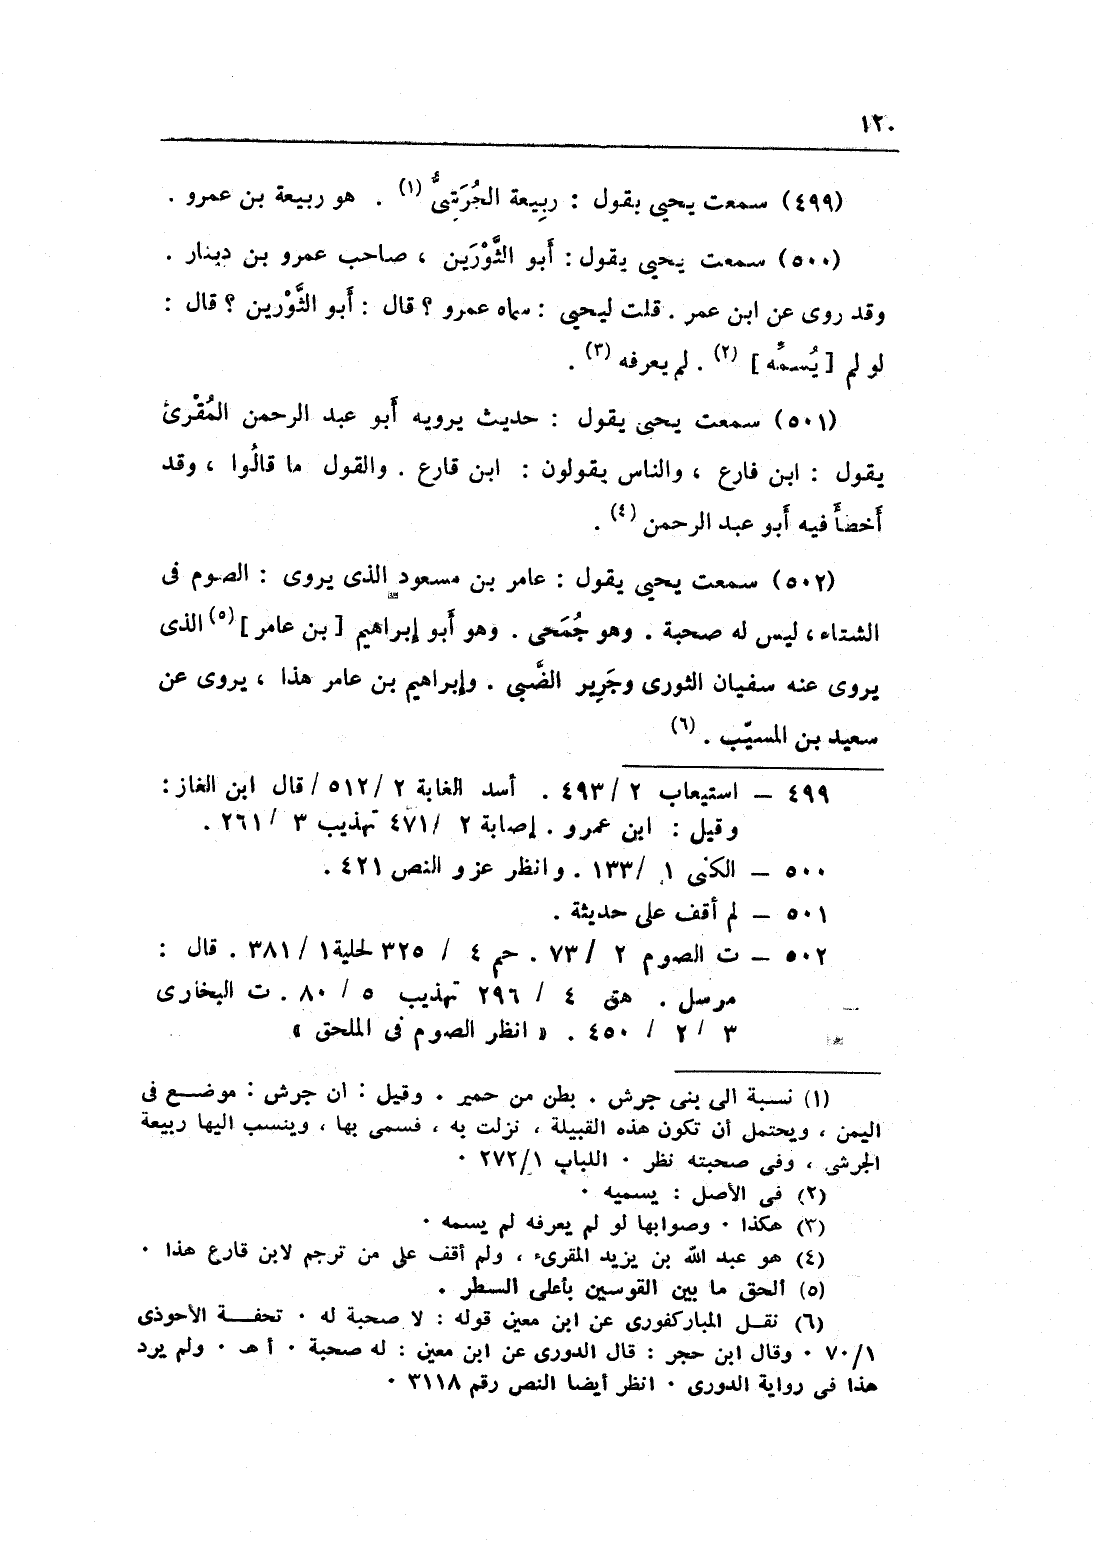 ١٢٠
(٤٩٩) سمعت يحيى يقول : ربيعة الجُرَشىُّ (١) . هو ربيعة بن عمرو .
(٥٠٠) سمعت يحيى يقول : أَبو الثَّوْرَين ، صاحب عمرو بن دينار .
وقد روى عن ابن عمر . قلت ليحيى : سماه عمرو ؟ قال : أَبو الثَّوْرين ؟ قال :
لو لم [ يُسمِّه ] (٢) . لم يعرفه (٣) .
(٥٠١) سمعت يحيى يقول : حديث يرويه أَبو عبد الرحمن المُقْرئ
يقول : ابن فارع ، والناس يقولون : ابن قارع . والقول ما قالُوا ، وقد
أَخطأَ فيه أَبو عبد الرحمن (٤) .
(٥٠٢) سمعت يحيى يقول : عامر بن مسعود الذى يروى : الصوم فى
الشتاء ، ليس له صحبة . وهو جُمَحى . وهو أَبو إبراهيم [ بن عامر ] (٥) الذى
يروى عنه سفيان الثورى وجَرِير الضَّبى . وإبراهيم بن عامر هذا ، يروى عن
سعيد بن المسيّب . (٦)
٤٩٩ – استيعاب ٢ / ٤٩٣ . أسد الغابة ٢ / ٥١٢ / قال ابن الغاز :
وقيل : ابن عمرو . إصابة ٢ / ٤٧١ تهذيب ٣ / ٢٦١ .
٥٠٠ – الكنى ١ / ١٣٣ . وانظر عزو النص ٤٢١ .
٥٠١ – لم أقف على حديثة .
٥٠٢ – ت الصوم ٢ / ٧٣ . حم ٤ / ٣٢٥ لحلية ١ / ٣٨١ . قال :
مرسل . هق ٤ / ٢٩٦ تهذيب ٥ / ٨٠ . ت البخارى
٣ / ٢ / ٤٥٠ . « انظر الصوم فى الملحق »
(١) نسبة الى بنى جرش . بطن من حمير . وقيل : ان جرش : موضع فى
اليمن ، ويحتمل أن تكون هذه القبيلة ، نزلت به ، فسمى بها ، وينسب اليها ربيعة
الجرشى ، وفى صحبته نظر . اللباب ٢٧٢/١ .
(٢) فى الأصل : يسميه .
(٣) هكذا . وصوابها لو لم يعرفه لم يسمه .
(٤) هو عبد الله بن يزيد المقرىء ، ولم أقف على من ترجم لابن قارع هذا .
(٥) ألحق ما بين القوسين بأعلى السطر .
(٦) نقل المباركفورى عن ابن معين قوله : لا صحبة له . تحفة الأحوذى
٧٠/١ . وقال ابن حجر : قال الدورى عن ابن معين : له صحبة . أ هـ . ولم يرد
هذا فى رواية الدورى . انظر أيضا النص رقم ٣١١٨ .